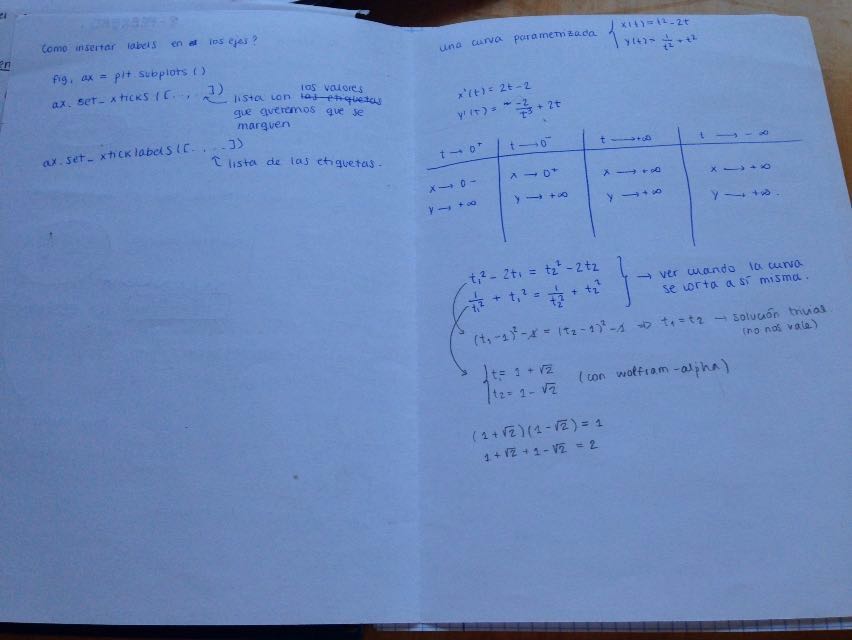 Como insertar labels en los ejes?
fig, ax = plt.subplots()
ax.set_xticks([.., ])
los valores
lista con las etiquetas
que queremos que se
marquen
ax.set_xticklabels([....])
lista de las etiquetas.
una curva parametrizada { x(t) = t² - 2t
y(t) = 1/t² + t²
x'(t) = 2t - 2
y'(t) = -2/t³ + 2t
t → 0⁺ | t → 0⁻ | t → +∞ | t → -∞
x → 0⁻ | x → 0⁺ | x → +∞ | x → +∞
y → +∞ | y → +∞ | y → +∞ | y → +∞.
t₁² - 2t₁ = t₂² - 2t₂
1/t₁² + t₁² = 1/t₂² + t₂²
→ ver cuando la curva
se corta a sí misma.
(t₁-1)² - 1 = (t₂-1)² - 1 ⇒ t₁ = t₂ → solución trivial
(no nos vale)
{ t₁ = 1 + √2
t₂ = 1 - √2
(con wolfram-alpha)
(1+√2)(1-√2) = 1
1+√2+1-√2 = 2